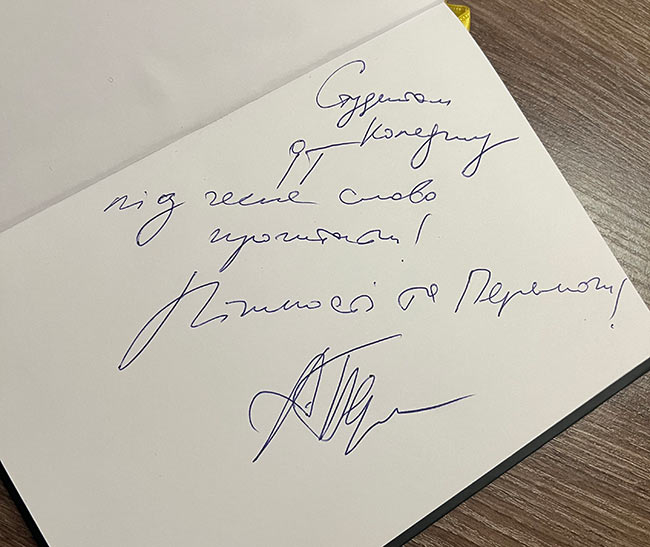 Студентам
ІТ Коледжу
під чесне слово
прочитати!
Мітності та Перемоги!